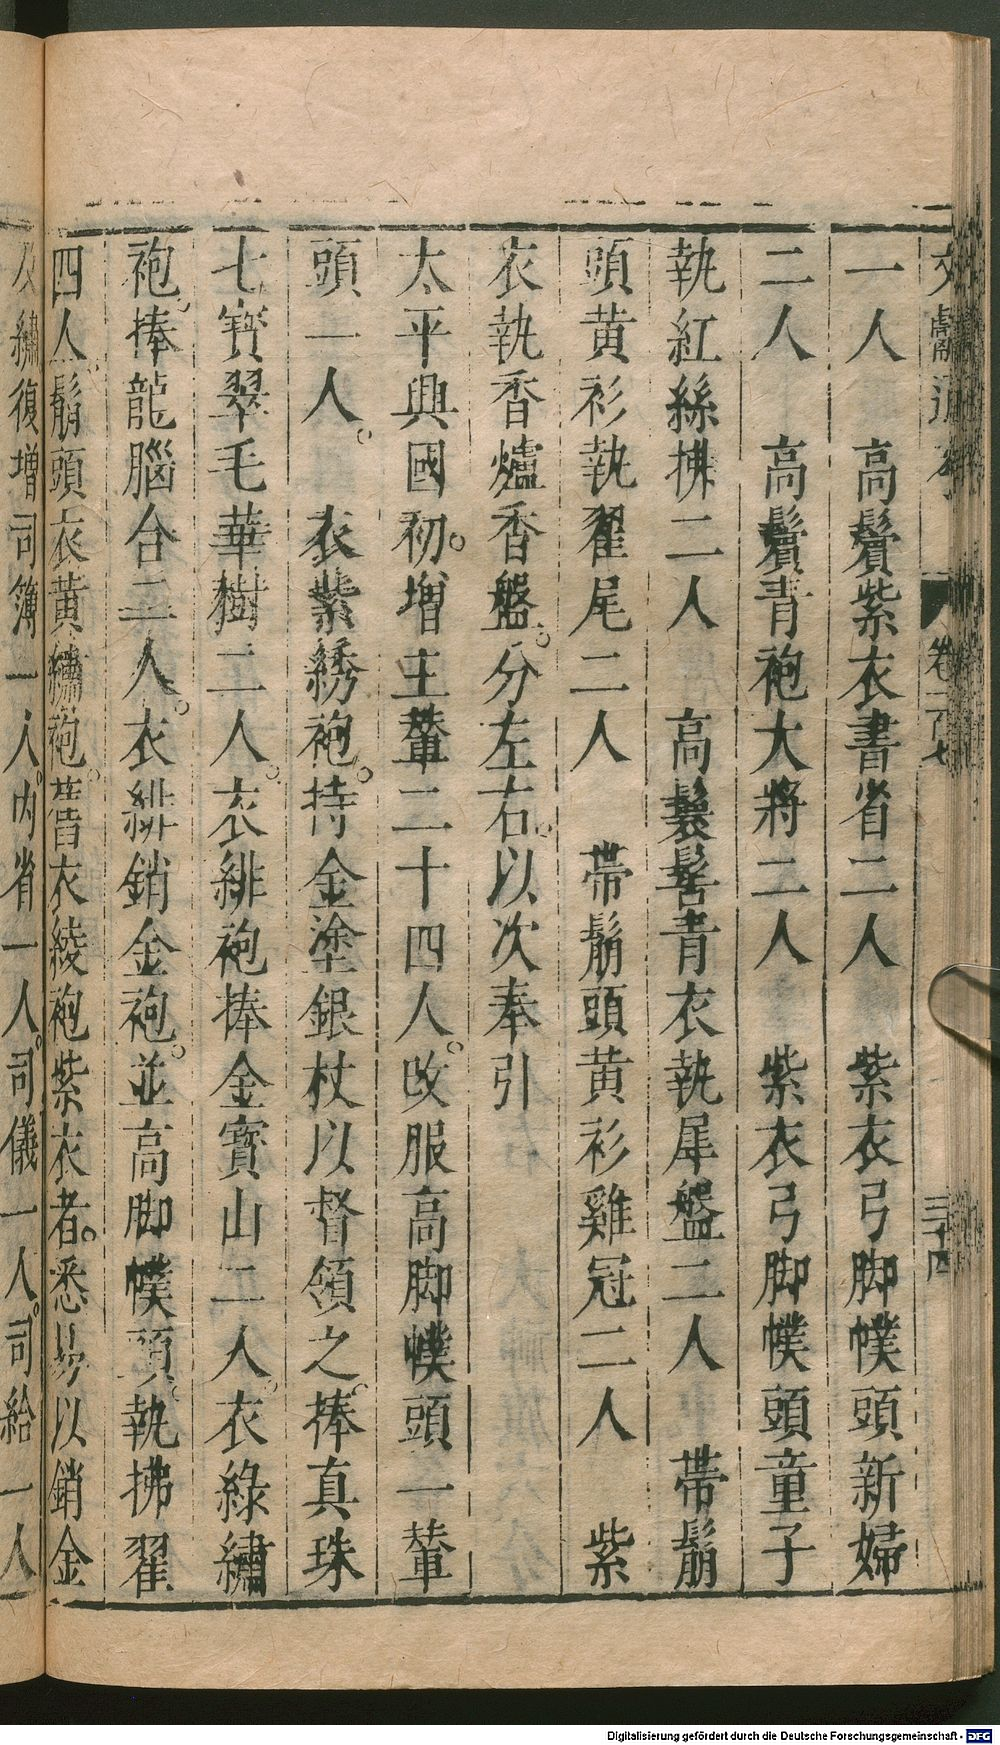 文獻通考 卷一百七 三十四
一人 高鬟紫衣書省二人 紫衣弓脚幞頭新婦
二人 高鬟青袍大將二人 紫衣弓脚幞頭童子
執紅絲拂二人 高鬟髻青衣執犀盤二人 帶鬅
頭黄衫執翟尾二人 帶鬅頭黄衫雞冠二人 紫
衣執香爐香盤分左右以次奉引
太平興國初增主輦二十四人改服高脚幞頭一輦
頭一人 衣紫綉袍持金塗銀杖以督領之捧真珠
七寳翠毛華樹二人衣緋袍捧金寳山二人衣綠繡
袍捧龍腦合二人衣緋銷金袍並高脚幞頭執拂翟
四人鬅頭衣黄繡袍舊衣綾袍紫衣者悉易以銷金
及繡復增司簿一人内省一人司儀一人司給一人
Digitalisierung gefördert durch die Deutsche Forschungsgemeinschaft - DFG